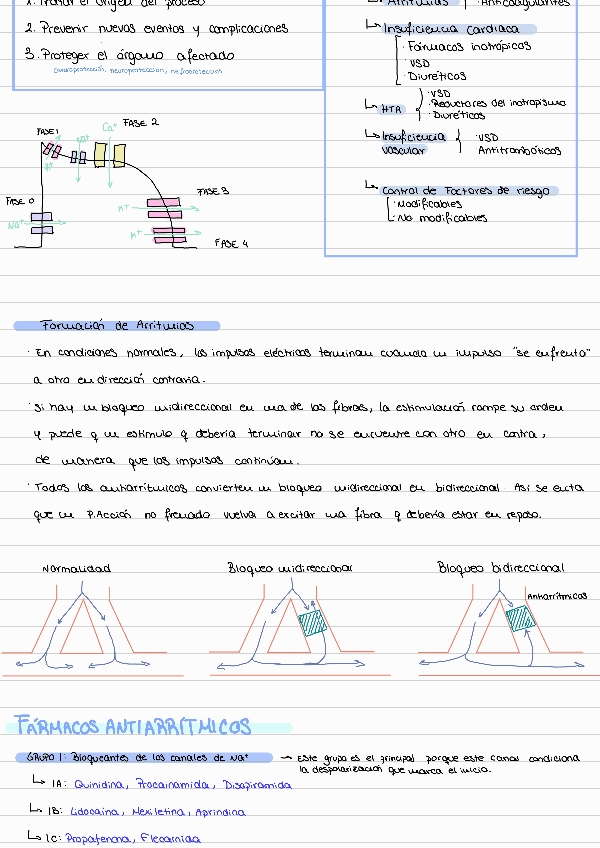 1. Tratar el origen del proceso
2. Prevenir nuevos eventos y complicaciones
3. Proteger el órgano afectado
(cardioprotección, neuroprotección, nefroprotección)
Arritmias · Anticoagulantes
Insuficiencia Cardíaca
· Fármacos inotrópicos
· VSD
· Diuréticos
HTA
· VSD
· Reductores del inotropismo
· Diuréticos
Insuficiencia vascular
· VSD
Antitrombóticos
Control de Factores de riesgo
· Modificables
· No modificables
FASE 1
FASE 2
Ca⁺
Na⁺
K⁺
FASE 0
Na⁺
FASE 3
K⁺
K⁺
FASE 4
Formación de Arritmias
· En condiciones normales, los impulsos eléctricos terminan cuando un impulso "se enfrenta"
a otro en dirección contraria.
· Si hay un bloqueo unidireccional en una de las fibras, la estimulación rompe su orden
y puede q un estímulo q debería terminar no se encuentre con otro en contra,
de manera que los impulsos continúan.
· Todos los antiarrítmicos convierten un bloqueo unidireccional en bidireccional. Así se evita
que un P.Acción no frenado vuelva a excitar una fibra q debería estar en reposo.
Normalidad
Bloqueo unidireccional
Bloqueo bidireccional
Antiarrítmicos
FÁRMACOS ANTIARRÍTMICOS
GRUPO I: Bloqueantes de los canales de Na⁺ → Este grupo es el principal porque este canal condiciona
la despolarización que marca el inicio.
IA: Quinidina, Procainamida, Disopiramida
IB: Lidocaína, Mexiletina, Aprindina
IC: Propafenona, Flecainida